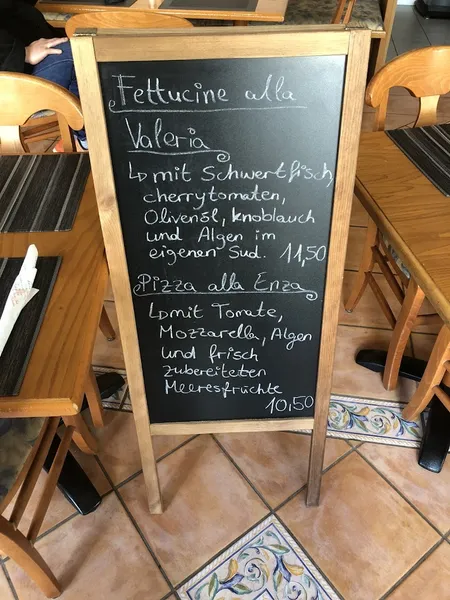 Fettucine alla
Valeria
↳ mit Schwertfisch,
cherrytomaten,
Olivenöl, knoblauch
und Algen im
eigenen Sud. 11,50
Pizza alla Enza
↳ mit Tomate,
Mozzarella, Algen
und frisch
zubereiteten
Meeresfrüchte
10,50